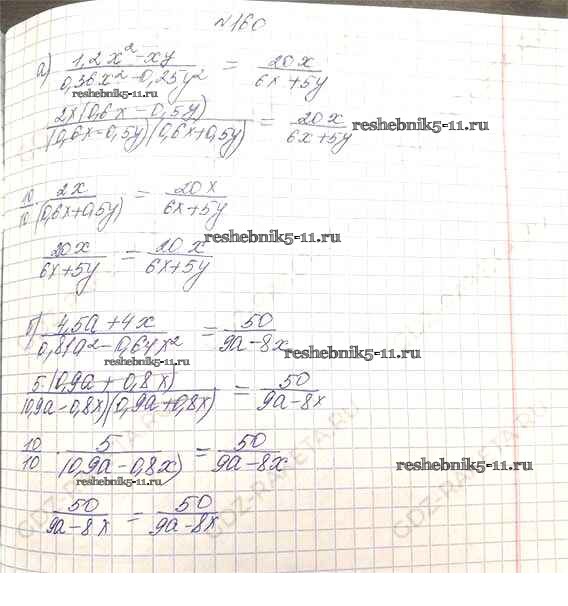 №160
а) (1,2x² - xy)/(0,36x² - 0,25y²) = 20x/(6x+5y)
reshebnik5-11.ru
2x(0,6x - 0,5y)/((0,6x-0,5y)(0,6x+0,5y)) = 20x/(6x+5y)
reshebnik5-11.ru
10/10 · 2x/(0,6x+0,5y) = 20x/(6x+5y)
reshebnik5-11.ru
20x/(6x+5y) = 20x/(6x+5y)
б) (4,5a+4x)/(0,81a² - 0,64x²) = 50/(9a-8x)
reshebnik5-11.ru
reshebnik5-11.ru
5(0,9a + 0,8x)/((0,9a-0,8x)(0,9a+0,8x)) = 50/(9a-8x)
10/10 · 5/(0,9a-0,8x) = 50/(9a-8x)
reshebnik5-11.ru
reshebnik5-11.ru
50/(9a-8x) = 50/(9a-8x)
GDZ-RAKETA.RU
GDZ-RAKETA.RU
reshebnik5-11.ru